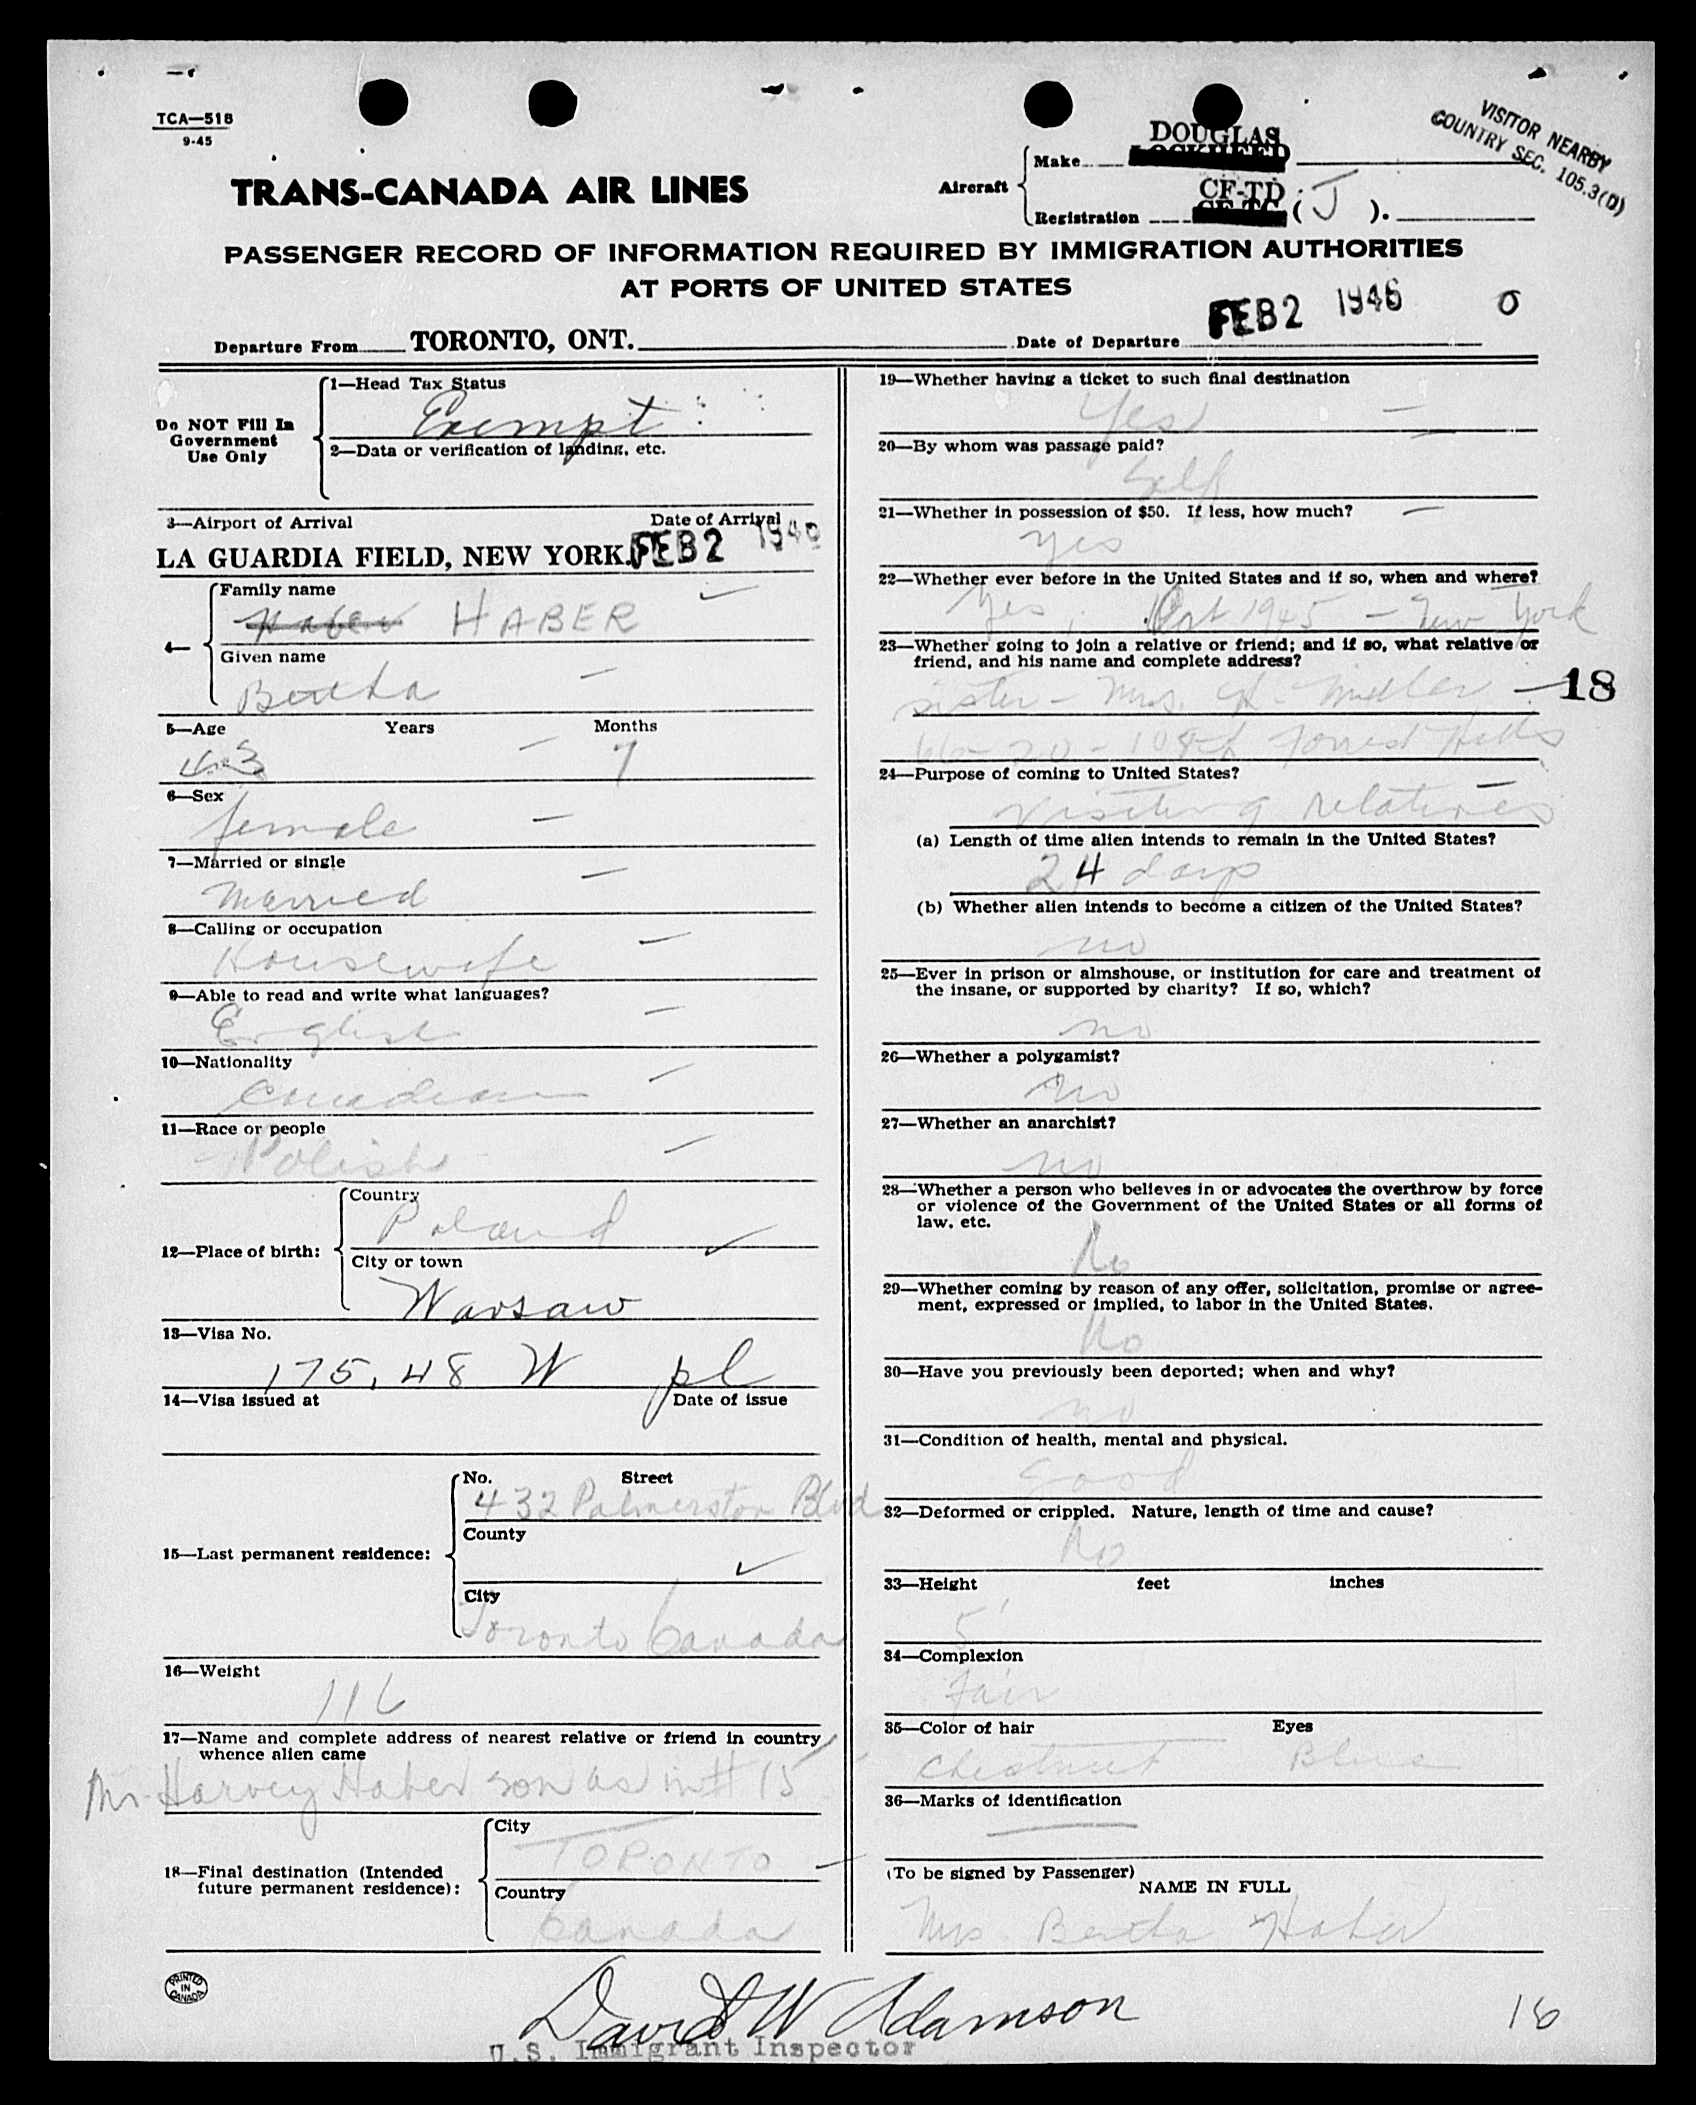 TCA—518
9-45
VISITOR NEARBY
COUNTRY SEC. 105.3(D)
TRANS-CANADA AIR LINES
Aircraft
Make
DOUGLAS
LOCKHEED
Registration
CF-TD
CF-TC
( J ).
PASSENGER RECORD OF INFORMATION REQUIRED BY IMMIGRATION AUTHORITIES
AT PORTS OF UNITED STATES
Departure From TORONTO, ONT. Date of Departure FEB 2 1946
Do NOT Fill In
Government
Use Only
1—Head Tax Status
Exempt
2—Data or verification of landing, etc.
3—Airport of Arrival Date of Arrival
LA GUARDIA FIELD, NEW YORK. FEB 2 1946
4—
Family name
Haber HABER
Given name
Bertha
5—Age Years Months
43 7
6—Sex
female
7—Married or single
Married
8—Calling or occupation
Housewife
9—Able to read and write what languages?
English
10—Nationality
Canadian
11—Race or people
Polish
12—Place of birth:
Country
Poland
City or town
Warsaw
13—Visa No.
175.48 W pl
14—Visa issued at Date of issue
15—Last permanent residence:
No. Street
432 Palmerston Blvd
County
City
Toronto Canada
16—Weight
116
17—Name and complete address of nearest relative or friend in country
whence alien came
Mr. Harvey Haber son as in # 15
18—Final destination (Intended
future permanent residence):
City
TORONTO
Country
Canada
19—Whether having a ticket to such final destination
Yes
20—By whom was passage paid?
Self
21—Whether in possession of $50. If less, how much?
yes
22—Whether ever before in the United States and if so, when and where?
Yes, Oct 1945 — New York
23—Whether going to join a relative or friend; and if so, what relative or
friend, and his name and complete address?
sister - Mrs. Miller
18
108th Forrest Hills
24—Purpose of coming to United States?
visiting relatives
(a) Length of time alien intends to remain in the United States?
24 days
(b) Whether alien intends to become a citizen of the United States?
no
25—Ever in prison or almshouse, or institution for care and treatment of
the insane, or supported by charity? If so, which?
no
26—Whether a polygamist?
no
27—Whether an anarchist?
no
28—Whether a person who believes in or advocates the overthrow by force
or violence of the Government of the United States or all forms of
law, etc.
No
29—Whether coming by reason of any offer, solicitation, promise or agree-
ment, expressed or implied, to labor in the United States.
No
30—Have you previously been deported; when and why?
no
31—Condition of health, mental and physical.
good
32—Deformed or crippled. Nature, length of time and cause?
No
33—Height feet inches
5'
34—Complexion
Fair
35—Color of hair Eyes
Chestnut Blue
36—Marks of identification
(To be signed by Passenger)
NAME IN FULL
Mrs Bertha Haber
PRINTED
IN
CANADA
David W Adamson
U.S. Immigrant Inspector
16